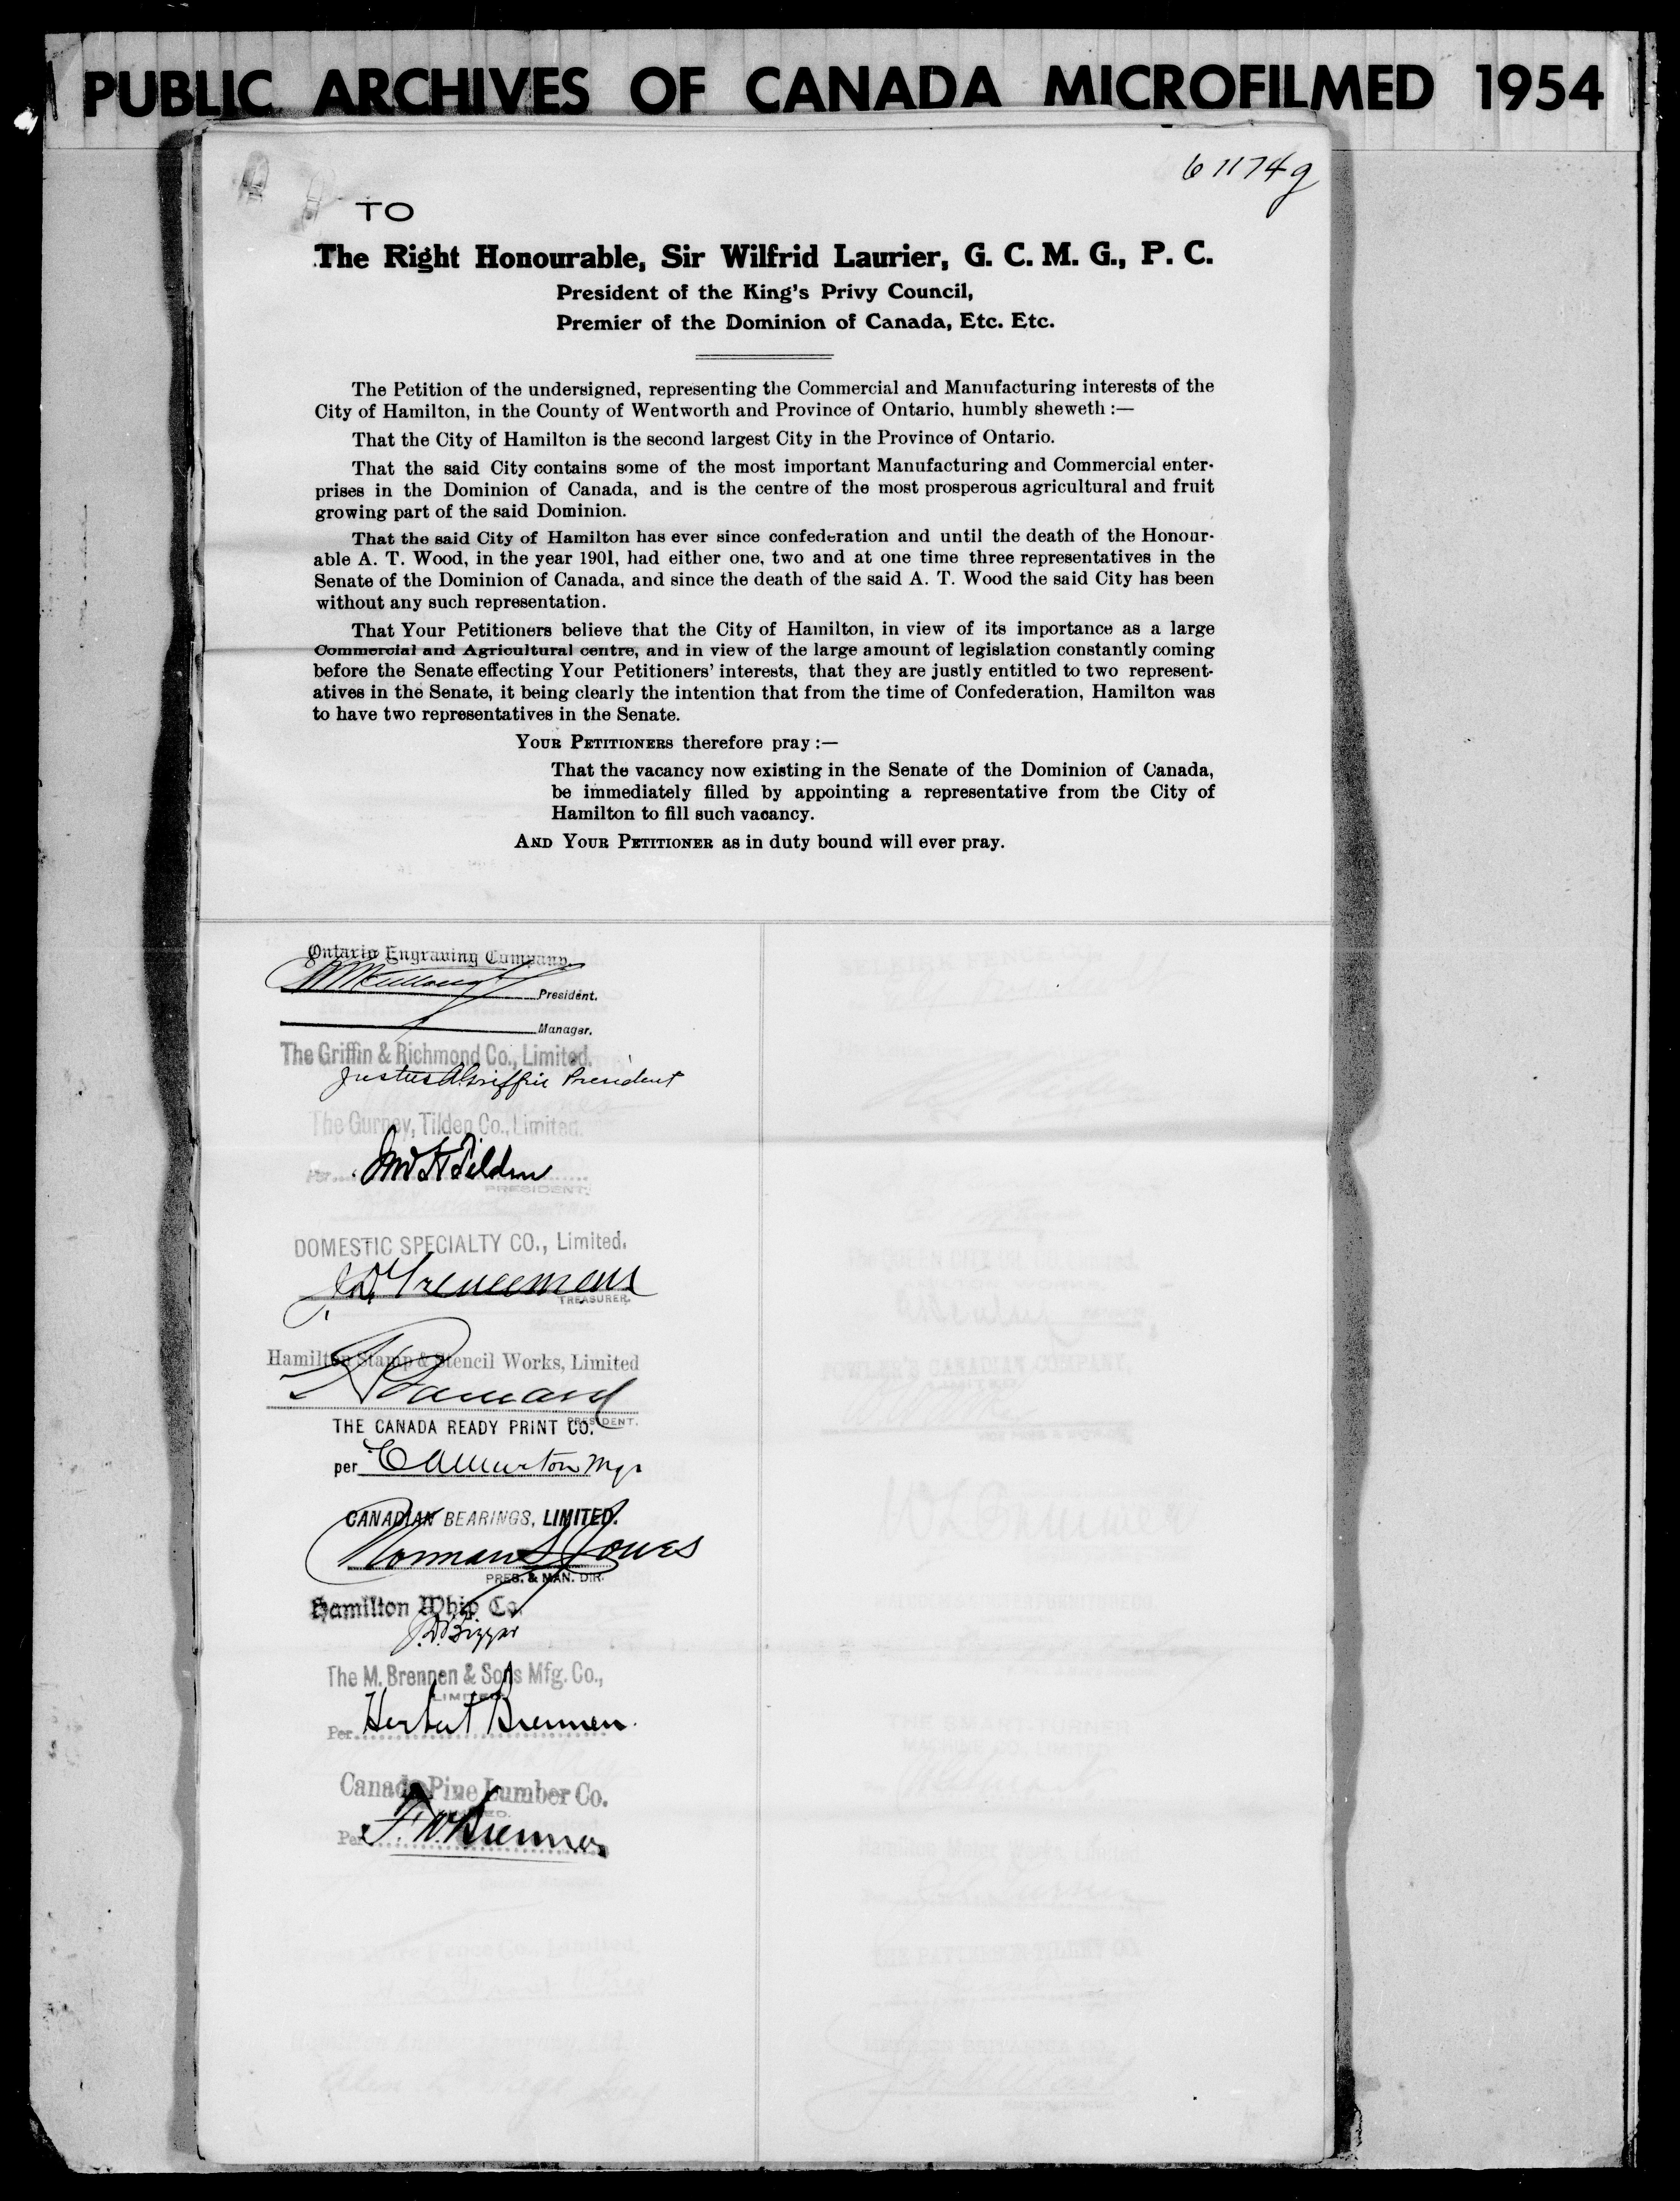 PUBLIC ARCHIVES OF CANADA MICROFILMED 1954
61174g
TO
The Right Honourable, Sir Wilfrid Laurier, G. C. M. G., P. C.
President of the King's Privy Council,
Premier of the Dominion of Canada, Etc. Etc.
The Petition of the undersigned, representing the Commercial and Manufacturing interests of the
City of Hamilton, in the County of Wentworth and Province of Ontario, humbly sheweth :—
That the City of Hamilton is the second largest City in the Province of Ontario.
That the said City contains some of the most important Manufacturing and Commercial enter-
prises in the Dominion of Canada, and is the centre of the most prosperous agricultural and fruit
growing part of the said Dominion.
That the said City of Hamilton has ever since confederation and until the death of the Honour-
able A. T. Wood, in the year 1901, had either one, two and at one time three representatives in the
Senate of the Dominion of Canada, and since the death of the said A. T. Wood the said City has been
without any such representation.
That Your Petitioners believe that the City of Hamilton, in view of its importance as a large
Commercial and Agricultural centre, and in view of the large amount of legislation constantly coming
before the Senate effecting Your Petitioners' interests, that they are justly entitled to two represent-
atives in the Senate, it being clearly the intention that from the time of Confederation, Hamilton was
to have two representatives in the Senate.
YOUR PETITIONERS therefore pray :—
That the vacancy now existing in the Senate of the Dominion of Canada,
be immediately filled by appointing a representative from the City of
Hamilton to fill such vacancy.
AND YOUR PETITIONER as in duty bound will ever pray.
Ontario Engraving Company.
President.
Manager.
The Griffin & Richmond Co., Limited.
Justus A Griffin President
The Gurney, Tilden Co., Limited.
Per Jno H Tilden
PRESIDENT.
DOMESTIC SPECIALTY CO., Limited.
TREASURER.
Hamilton Stamp & Stencil Works, Limited
PRESIDENT.
THE CANADA READY PRINT CO.
per Mgr
CANADIAN BEARINGS, LIMITED.
Norman S Jones
PRES. & MAN. DIR.
Hamilton Whip Co.
J. D. Bigger
The M. Brennen & Sons Mfg. Co.,
LIMITED
Per Herbert Brennen.
Canada Pine Lumber Co.
LIMITED.
Per F. W. Brennen